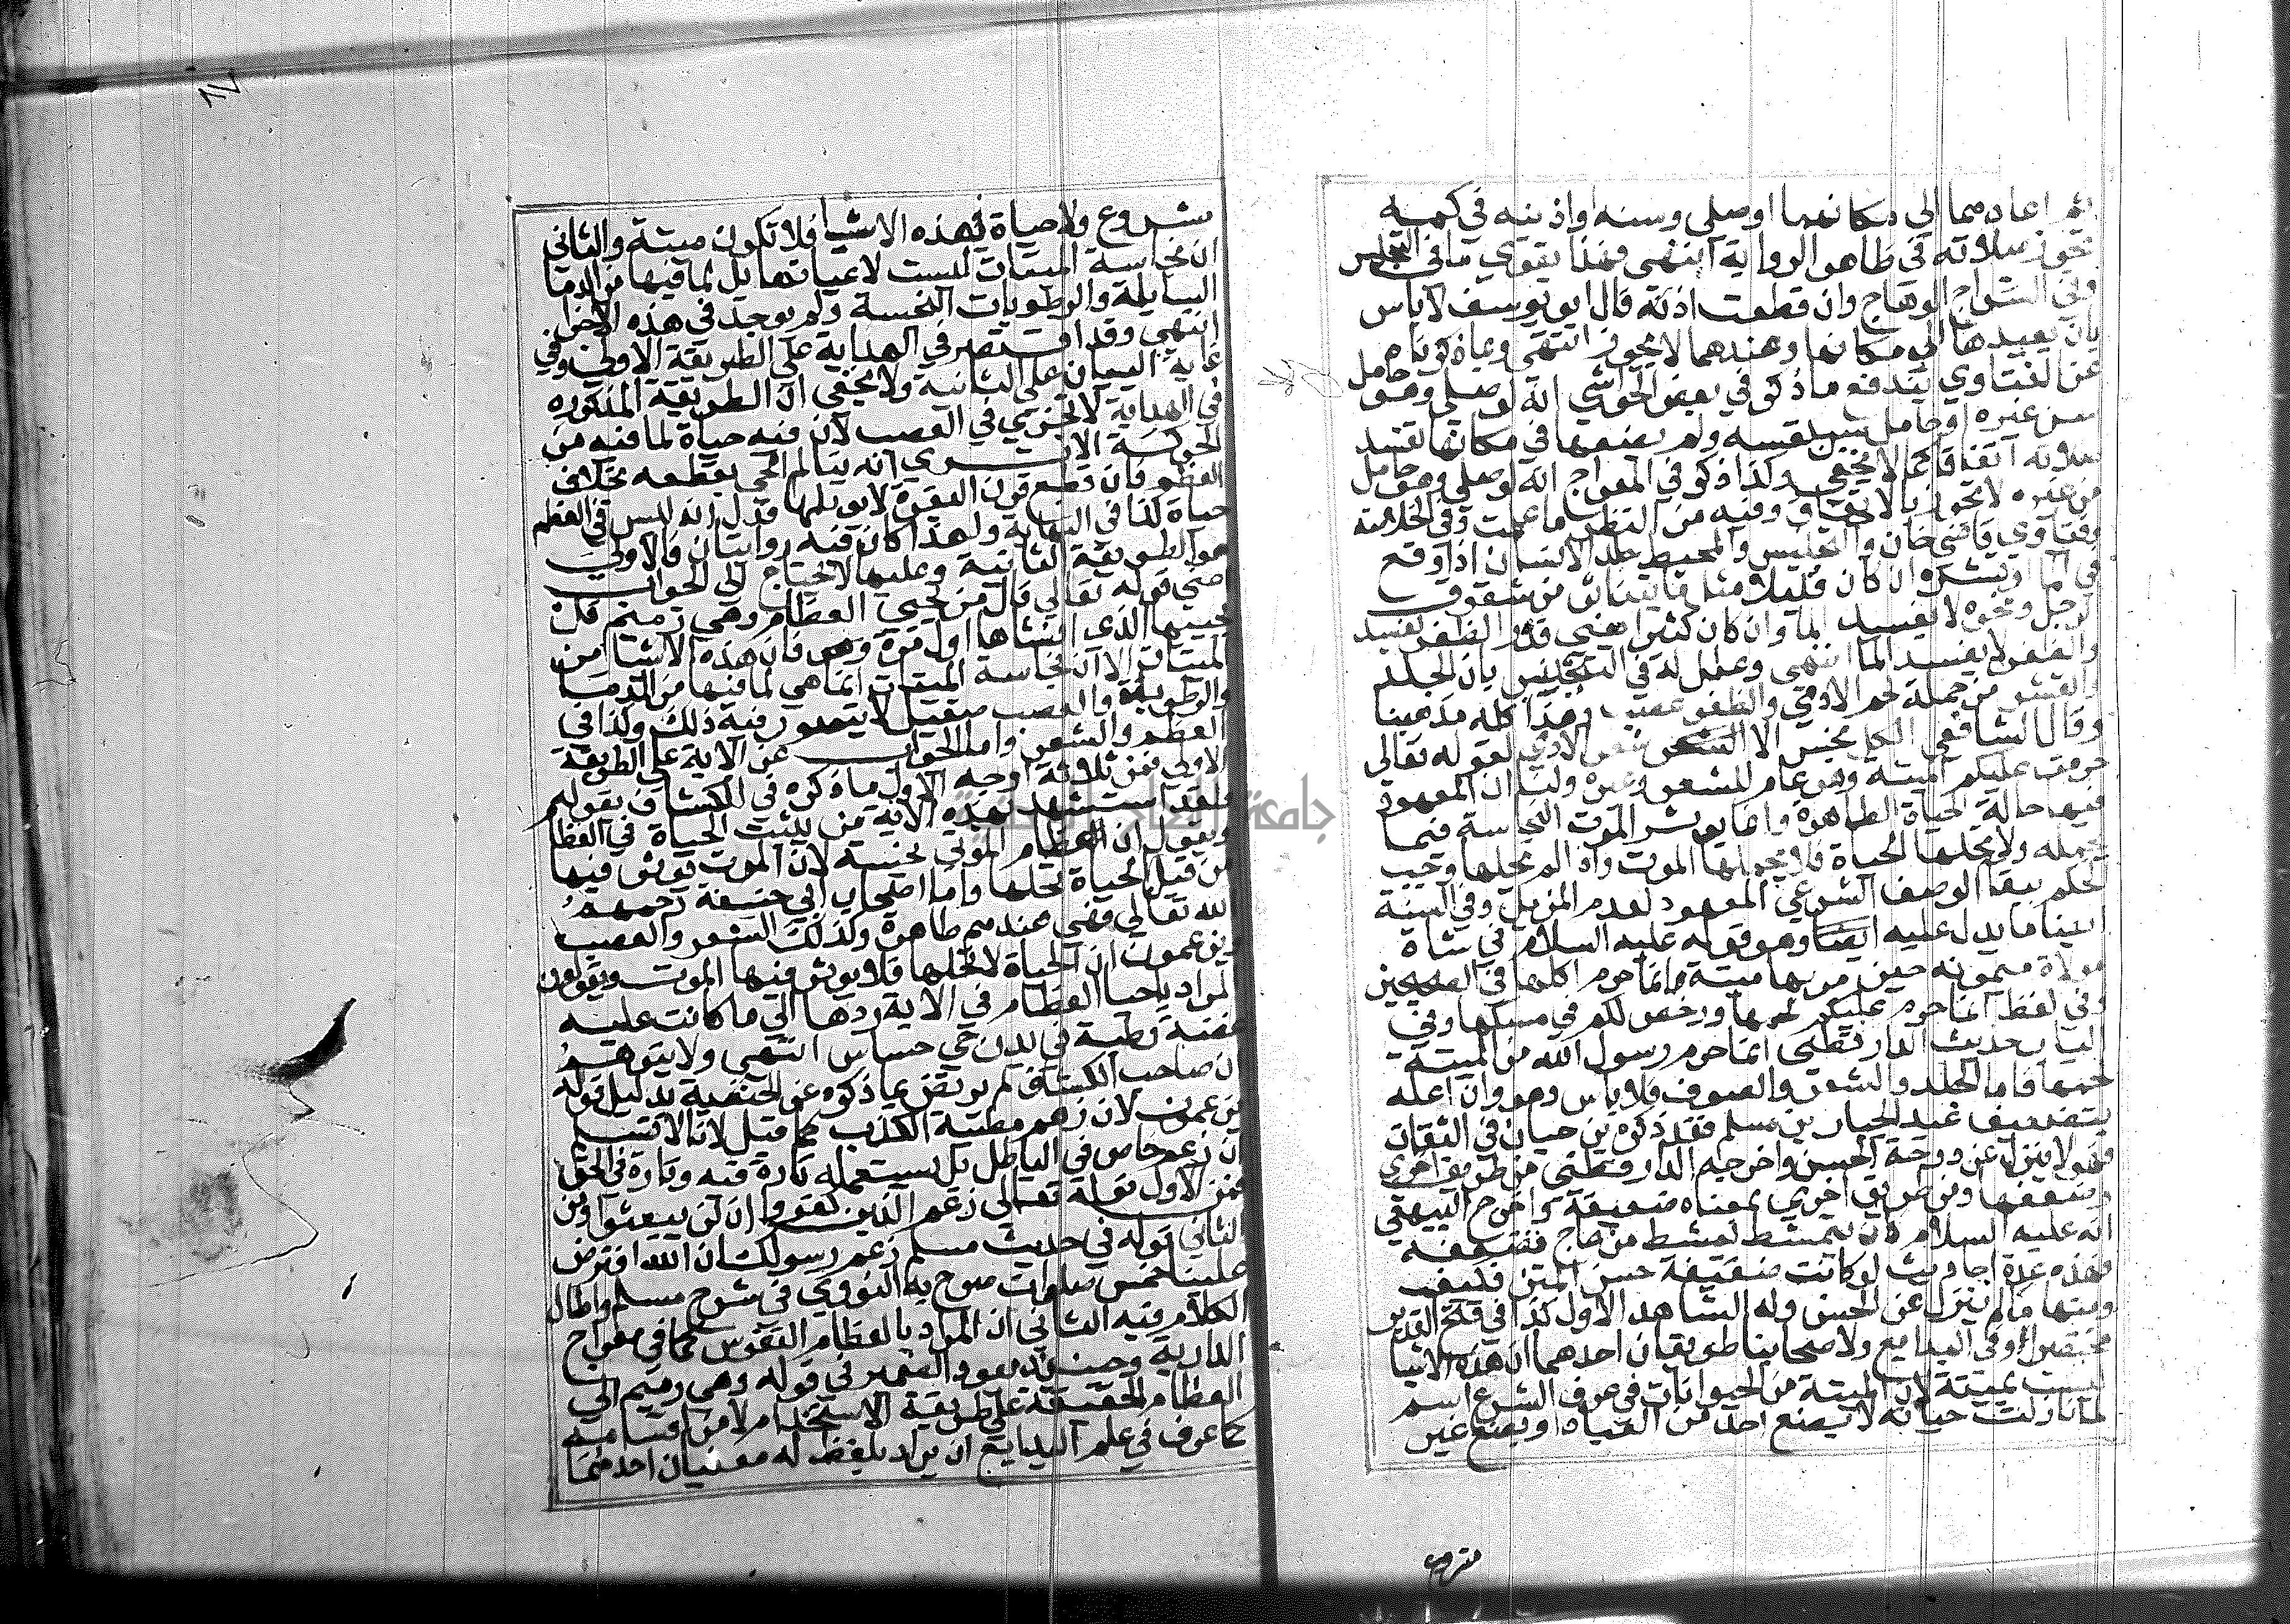 ثم اعادهما الى مكانهما اوصلى وسنه او اذنه في كمه
تجوز صلاته في ظاهر الرواية انتهى فهذا يقوي ما في التجنيس
وفي السراج الوهاج وان قطعت اذنه قال ابو يوسف لا باس
بان يعيدها الى مكانها وعندهما لا يجوز انتهى وبما ذكرناه
عن الفتاوي يندفع ما ذكر في بعض الحواشي انه لو صلى وهو حامل
سن غيره او حامل سن نفسه ولم يضعها في مكانها تفسد
صلاته اتفاقا كما لا يخفى وكذا ذكر في المعراج انه لو صلى وهو حامل
من غيره لا تجوز بالاتفاق وفيه من النظر ما علمت وفي الخلاصة
وفتاوي قاضي خان والتجنيس والمحيط جلد الانسان اذا وقع
في الما او قشره ان كان قليلا مثل ما يتناثر من شقوق
الرجل ونحوه لا يفسد الما وان كان كثيرا يعني قدر الظفر يفسد
والظفر لا يفسد الما انتهى وعلل له في التجنيس بان الجلد
والقشر من جملة لحم الادمي والظفر عصب وهذا كله مذهبنا
وقال الشافعي الكل نجس الا شعر الادمي لقوله تعالى
حرمت عليكم الميتة وهو عام للشعر وغيره ولنا ان المعهود
فيها حالة الحياة الطاهرة وانما يوثر الموت النجاسة فيما
يحله ولا يحلها الحياة فلا يحلها الموت واذا لم يحلها وجب
الحكم ببقا الوصف الشرعي المعهود لعدم المزيل وفي السنة
ايضا ما يدل عليه ايضا وهو قوله عليه السلام في شاة
مولاة ميمونه حين مر بها ميتة انما حرم اكلها في الصحيحين
وفي لفظ انما حرم عليكم لحمها ورخص لكم في مسكها وفي
الباب حديث الدارقطني انما حرم رسول الله من الميتة
لحمها فاما الجلد والشعر والصوف فلا باس وهو وان اعله
بتضعيف عبد الجبار بن مسلم فقد ذكره بن حبان في الثقات
فهو لا ينزل عن درجة الحسن واخرجه الدارقطني من طريق اخرى
وضعفها ومن طريق اخرى بمعناه ضعيفة واخرج البيهقي
انه عليه السلام كان يمتشط بمشط من عاج فضعفه
فهذه عدة احاديث لو كانت ضعيفة حسن المتن فكيف
ومنها ما لم ينزل عن الحسن وله الشاهد الاول كذا في فتح القدير
مختصرا وفي البدايع ولاصحابنا طريقان احدهما ان هذه الاشيا
ليست بميتة لان الميتة من الحيوانات في عرف الشرع اسم
لما زالت حياته لا بصنع احد من العباد او بصنع غير
مشروع
مشروع ولا حياة في هذه الاشيا فلا تكون ميتة والثاني
ان نجاسة الميتات ليست لاعيانها بل لما فيها من الدما
السايلة والرطوبات النجسة ولم يوجد في هذه الاجزا
انتهى وقد اقتصر في الهداية على الطريقة الاولى وفي
غاية البيان على الثانية ولا يخفى ان الطريقة المذكورة
في الهداية لا تجري في العصب لان فيه حياة لما فيه من
الحركة الا ترى انه يتالم الحي بقطعه بخلاف
العظم فان قطع قرن البقرة لا يولمها فدل انه ليس في العظم
حياة كذا في النهاية ولهذا كان فيه روايتان والاولى
هو الطريقة الثانية وعليها لا يحتاج الى الجواب
عن قوله تعالى قال من يحيي العظام وهي رميم قل
يحييها الذي انشاها اول مرة فان هذه الاشيا من
الميتة الا ان نجاسة الميتات انما هي لما فيها من الدما
والرطوبة والعصب صقيل لا يتصور فيه ذلك وكذا في
العظم والشعر واما الجواب عن الآية على الطريقة
الاولى فمن ثلاثة اوجه الاول ما ذكره في الكشاف بقوله
ولقد استشهد بهذه الاية من يثبت الحياة في العظا
ويقول ان عظام الموتى نجسة لان الموت يوثر فيها
من قبل الحياة تحلها واما اصحاب ابي حنيفة رحمهم
الله تعالى فهي عندهم طاهرة وكذلك الشعر والعصب
ويزعمون ان الحياة لا تحلها فلا يوثر فيها الموت ويقولون
المراد باحيا العظام في الاية ردها الى ما كانت عليه
غضة رطبة في بدن حي حساس انتهى ولا يتوهم
ان صاحب الكشاف لم يرتض بما ذكره عن الحنفية بدليل قوله
يزعمون لان زعم مطية الكذب كما قيل لانا لا نسلم
ان زعم خاص في الباطل بل يستعمل تارة فيه وتارة في الحق
فمن الاول قوله تعالى زعم الذين كفروا ان لن يبعثوا ومن
الثاني قوله في حديث مسلم زعم رسولك ان الله افترض
علينا خمس صلوات صرح به النووي في شرح مسلم واطال
الكلام فيه الثاني ان المراد بالعظام النفوس كما في معراج
الدارية وحينئذ يعود الضمير في قوله وهي رميم الى
العظام الحقيقة على طريقة الاستخدام لان من اقسامه
كما عرف في علم البدايع ان يراد بلفظ له معنيان احدهما